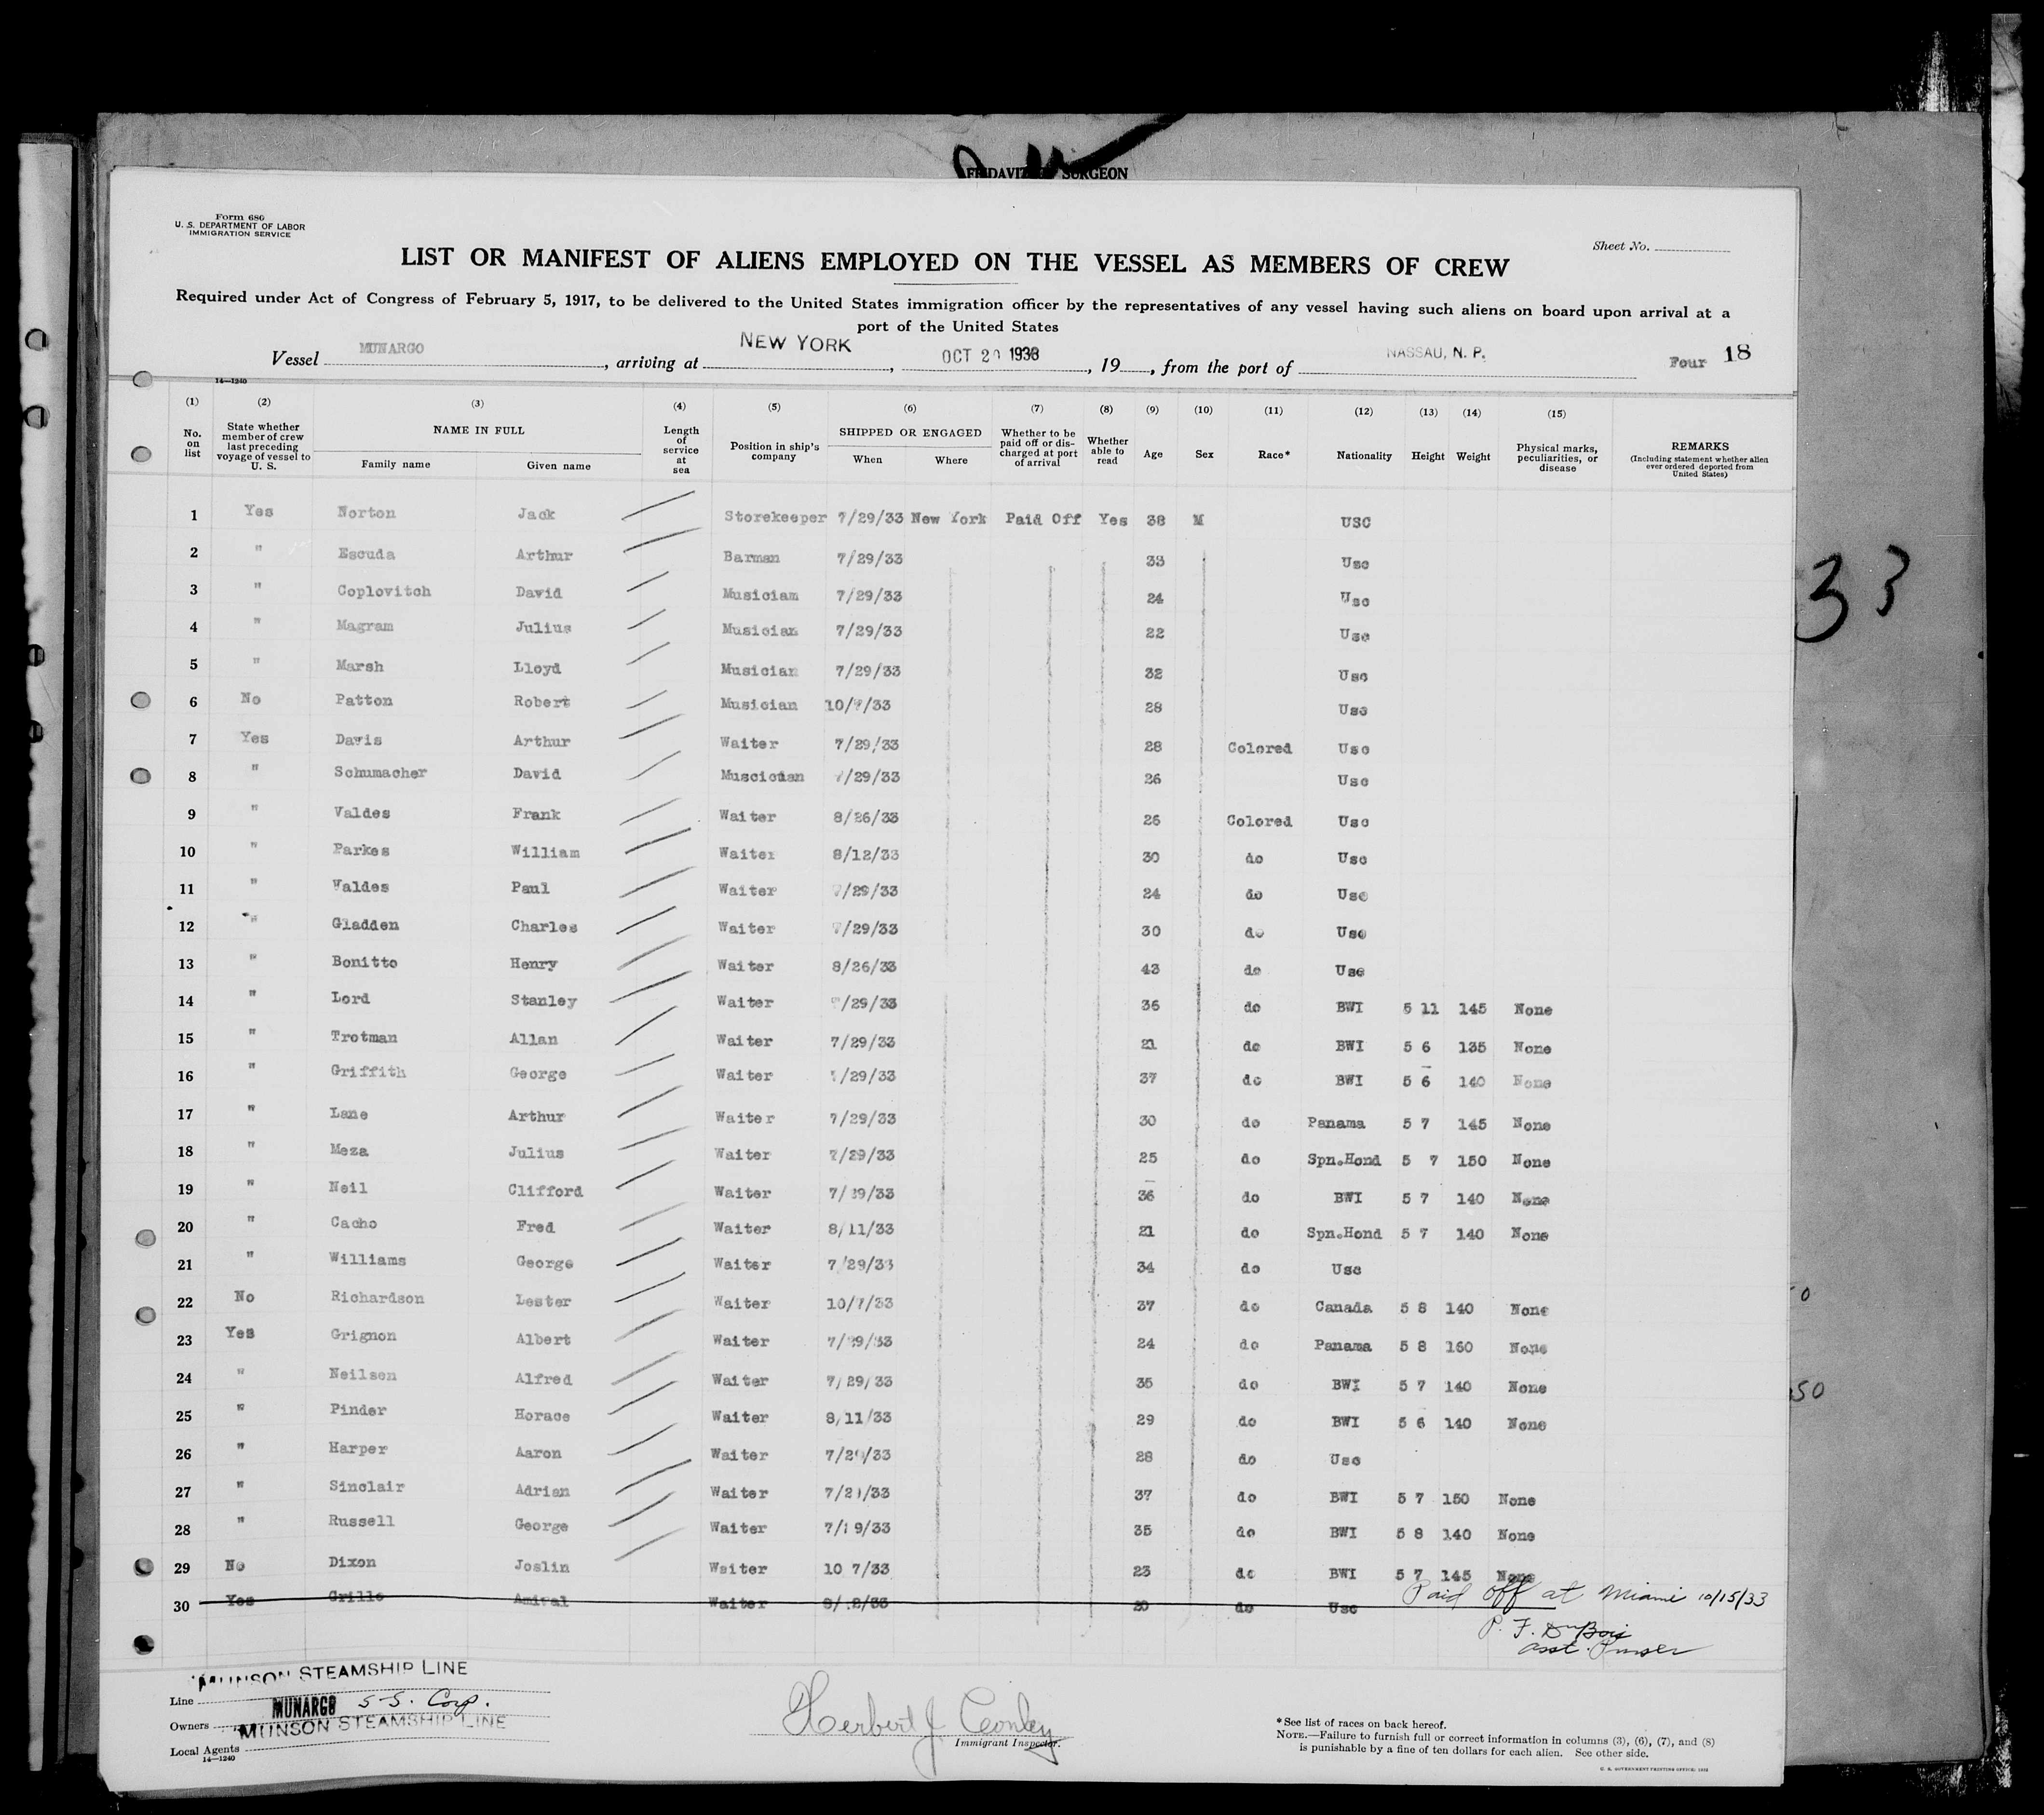 FFIDAVIT SURGEON
Form 680
U. S. DEPARTMENT OF LABOR
IMMIGRATION SERVICE
Sheet No.
LIST OR MANIFEST OF ALIENS EMPLOYED ON THE VESSEL AS MEMBERS OF CREW
Required under Act of Congress of February 5, 1917, to be delivered to the United States immigration officer by the representatives of any vessel having such aliens on board upon arrival at a
port of the United States
Vessel MUNARGO, arriving at NEW YORK, OCT 20 1933, 19, from the port of NASSAU, N. P. Four 18
14—1240
(1) (2) (3) (4) (5) (6) (7) (8) (9) (10) (11) (12) (13) (14) (15)
No. on list State whether member of crew last preceding voyage of vessel to U. S. NAME IN FULL Family name Given name Length of service at sea Position in ship's company SHIPPED OR ENGAGED When Where Whether to be paid off or discharged at port of arrival Whether able to read Age Sex Race* Nationality Height Weight Physical marks, peculiarities, or disease REMARKS (Including statement whether alien ever ordered deported from United States)
1 Yes Norton Jack Storekeeper 7/29/33 New York Paid Off Yes 38 M USC
2 " Escuda Arthur Barman 7/29/33 33 Usc
3 " Coplovitch David Musiciam 7/29/33 24 Usc
4 " Magram Julius Musician 7/29/33 22 Usc
5 " Marsh Lloyd Musician 7/29/33 32 Usc
6 No Patton Robert Musician 10/7/33 28 Usc
7 Yes Davis Arthur Waiter 7/29/33 28 Colored Usc
8 " Schumacher David Muscician 7/29/33 26 Usc
9 " Valdes Frank Waiter 8/26/33 26 Colored Usc
10 " Parkes William Waiter 8/12/33 30 do Usc
11 " Valdes Paul Waiter 7/29/33 24 do Usc
12 " Gladden Charles Waiter 7/29/33 30 do Usc
13 " Bonitto Henry Waiter 8/26/33 43 do Usc
14 " Lord Stanley Waiter 7/29/33 36 do BWI 5 11 145 None
15 " Trotman Allan Waiter 7/29/33 21 do BWI 5 6 135 None
16 " Griffith George Waiter 7/29/33 37 do BWI 5 6 140 None
17 " Lane Arthur Waiter 7/29/33 30 do Panama 5 7 145 None
18 " Meza Julius Waiter 7/29/33 25 do Spn.Hond 5 7 150 None
19 " Neil Clifford Waiter 7/29/33 36 do BWI 5 7 140 None
20 " Cacho Fred Waiter 8/11/33 21 do Spn.Hond 5 7 140 None
21 " Williams George Waiter 7/29/33 34 do Usc
22 No Richardson Lester Waiter 10/7/33 37 do Canada 5 8 140 None
23 Yes Grignon Albert Waiter 7/29/33 24 do Panama 5 8 160 None
24 " Neilsen Alfred Waiter 7/29/33 35 do BWI 5 7 140 None
25 " Pinder Horace Waiter 8/11/33 29 do BWI 5 6 140 None
26 " Harper Aaron Waiter 7/29/33 28 do Usc
27 " Sinclair Adrian Waiter 7/29/33 37 do BWI 5 7 150 None
28 " Russell George Waiter 7/19/33 35 do BWI 5 8 140 None
29 No Dixon Joslin Waiter 10 7/33 23 do BWI 5 7 145 None
30 Yes Grillo Amiral Waiter 20 do Usc Paid off at Miami 10/15/33
P. F. DuBois
Asst. Purser
33
50
MUNSON STEAMSHIP LINE
Line
Owners MUNARGO S.S. Corp.
MUNSON STEAMSHIP LINE
Local Agents
14—1240
Herbert J Conley
Immigrant Inspector.
*See list of races on back hereof.
NOTE.—Failure to furnish full or correct information in columns (3), (6), (7), and (8)
is punishable by a fine of ten dollars for each alien. See other side.
U. S. GOVERNMENT PRINTING OFFICE: 1932